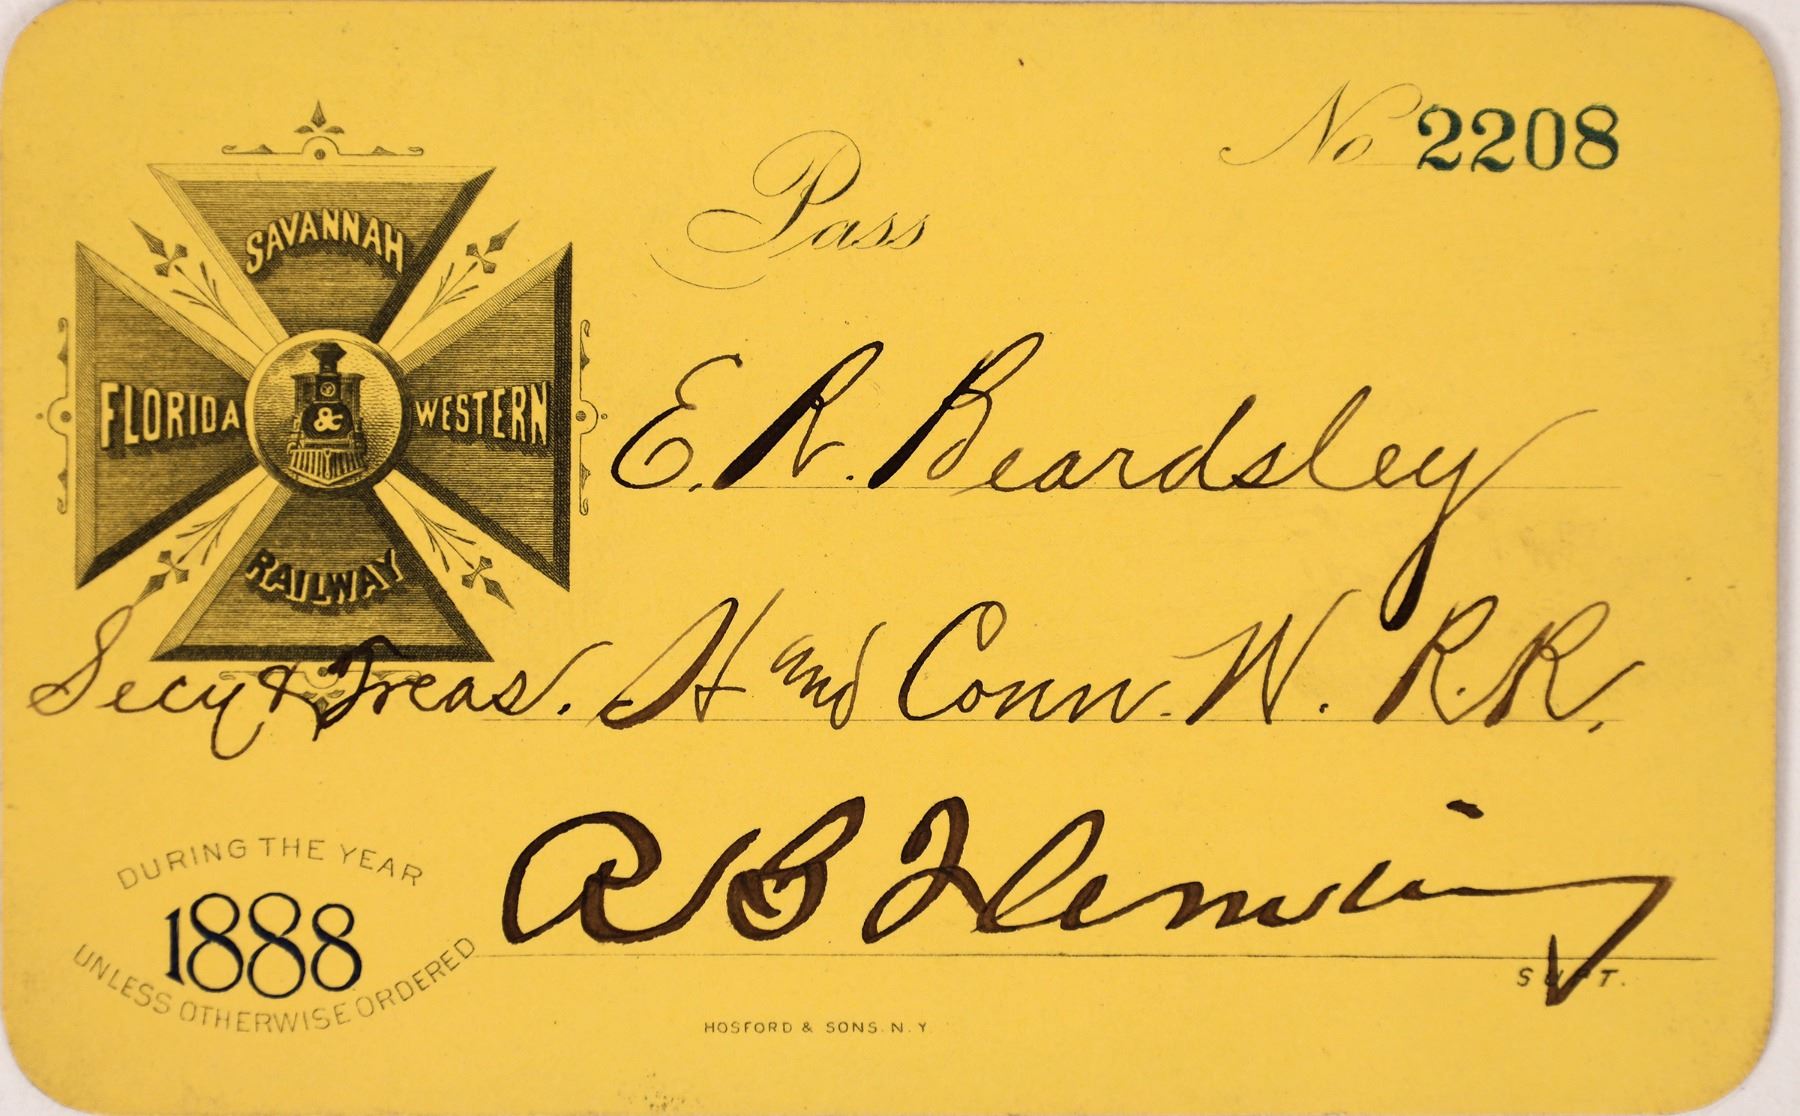 No 2208
Pass
SAVANNAH
FLORIDA & WESTERN
RAILWAY
E. R. Beardsley
Secy & Treas. H and Conn. W. R.R.
R B Fleming
SUPT.
DURING THE YEAR
1888
UNLESS OTHERWISE ORDERED
HOSFORD & SONS. N. Y